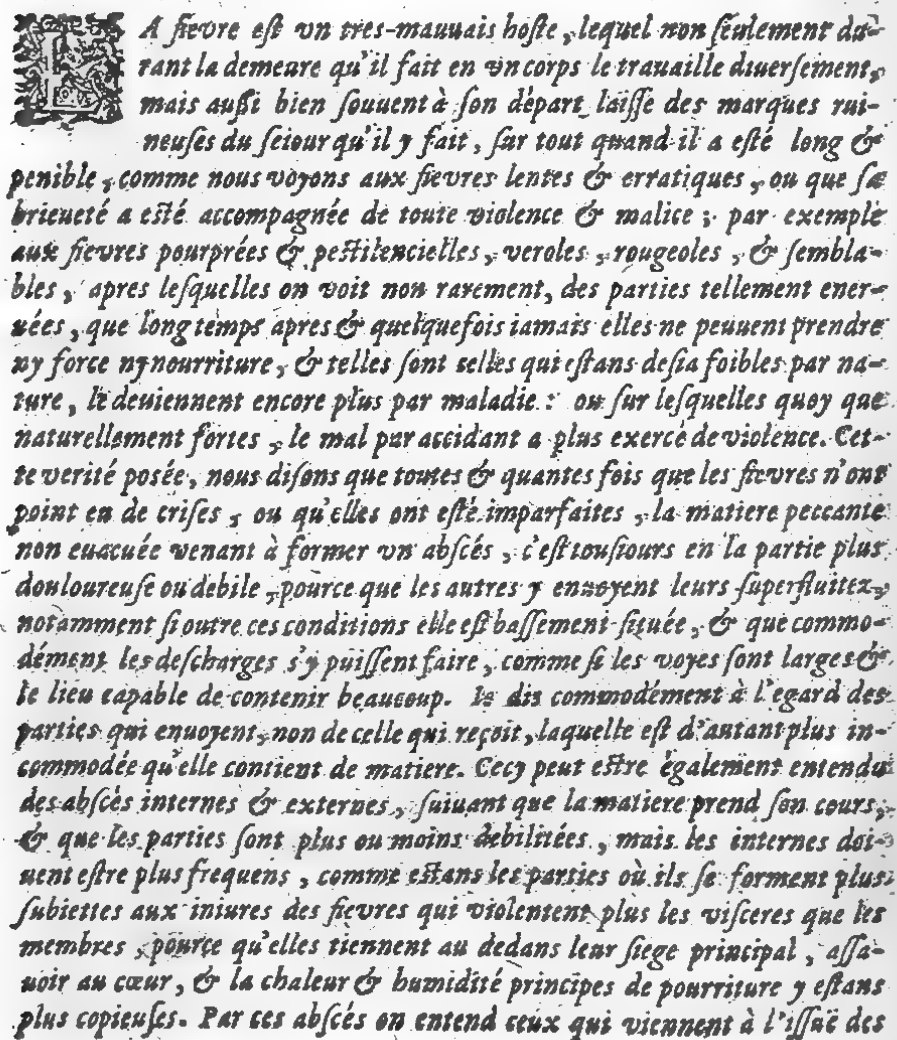 LA fievre est vn tres-mauuais hoste, lequel non seulement du-
rant la demeure qu'il fait en vn corps le trauaille diuersement,
mais aussi bien souuent à son départ laisse des marques rui-
neuses du seiour qu'il y fait, sur tout quand il a esté long &
penible, comme nous voyons aux fievres lentes & erratiques, ou que sa
brieueté a esté accompagnée de toute violence & malice ; par exemple
aux fievres pourprées & pestilencielles, veroles, rougeoles, & sembla-
bles, apres lesquelles on voit non rarement, des parties tellement ener-
uées, que long temps apres & quelquefois iamais elles ne peuuent prendre
ny force ny nourriture, & telles sont celles qui estans desia foibles par na-
ture, le deuiennent encore plus par maladie : ou sur lesquelles quoy que
naturellement fortes, le mal par accidant a plus exercé de violence. Cet-
te verité posée, nous disons que toutes & quantes fois que les fievres n'ont
point eu de crises, ou qu'elles ont esté imparfaites, la matiere peccante
non euacuée venant à former vn abscés, c'est tousiours en la partie plus
douloureuse ou debile, pource que les autres y enuoyent leurs superfluitez,
notamment si outre ces conditions elle est bassement située, & que commo-
dément les descharges s'y puissent faire, comme si les voyes sont larges &
le lieu capable de contenir beaucoup. Ie dis commodément à l'egard des
parties qui enuoyent, non de celle qui reçoit, laquelle est d'autant plus in-
commodée qu'elle contient de matiere. Cecy peut estre également entendu
des abscés internes & externes, suiuant que la matiere prend son cours,
& que les parties sont plus ou moins debilitées, mais les internes doi-
uent estre plus frequens, comme estans les parties où ils se forment plus
subiettes aux iniures des fievres qui violentent plus les visceres que les
membres, pource qu'elles tiennent au dedans leur siege principal, assa-
uoir au cœur, & la chaleur & humidité principes de pourriture y estans
plus copieuses. Par ces abscés on entend ceux qui viennent à l'issuë des